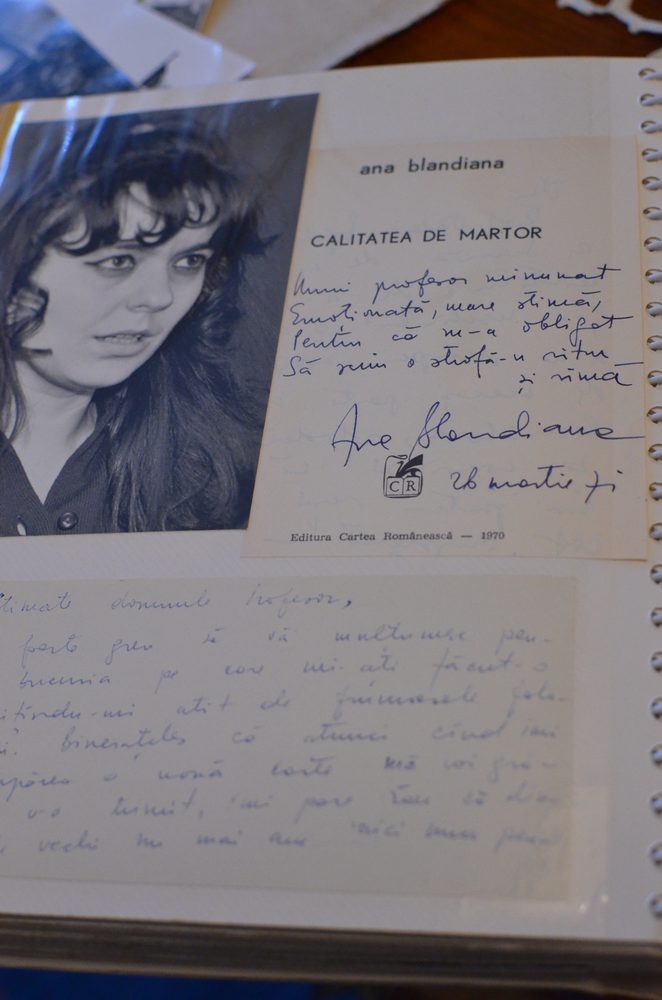 ana blandiana
CALITATEA DE MARTOR
Unui profesor minunat
Emoționată, mare stimă,
Pentru că m-a obligat
Să scriu o strofă-n ritm
și rimă
Ana Blandiana
CR
26 martie 71
Editura Cartea Românească — 1970
Stimate domnule Profesor,
foarte greu să vă mulțumesc pen-
bucuria pe care mi-ați făcut-o
atît de frumoasele
Bineînțeles că atunci cînd îmi
apărea o nouă carte mă voi gră-
v-o trimit, îmi pare rău că din
vechi nu mai am nici una